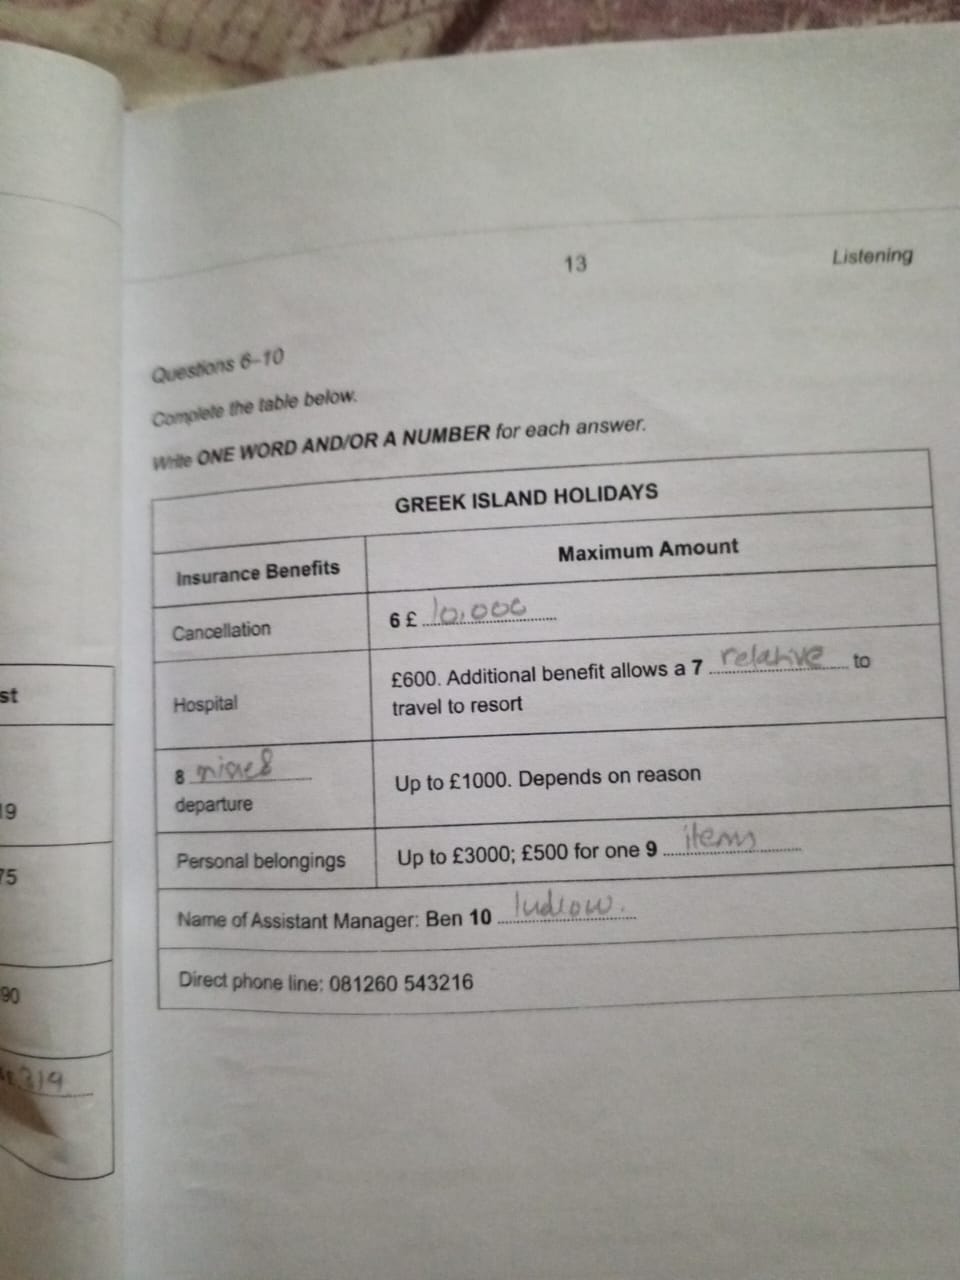 13 Listening
Questions 6–10
Complete the table below.
Write ONE WORD AND/OR A NUMBER for each answer.
GREEK ISLAND HOLIDAYS
Insurance Benefits Maximum Amount
Cancellation 6 £ 10,000
Hospital £600. Additional benefit allows a 7 relative to
travel to resort
8
departure Up to £1000. Depends on reason
Personal belongings Up to £3000; £500 for one 9 item
Name of Assistant Manager: Ben 10 ludlow.
Direct phone line: 081260 543216
st
19
75
90
319